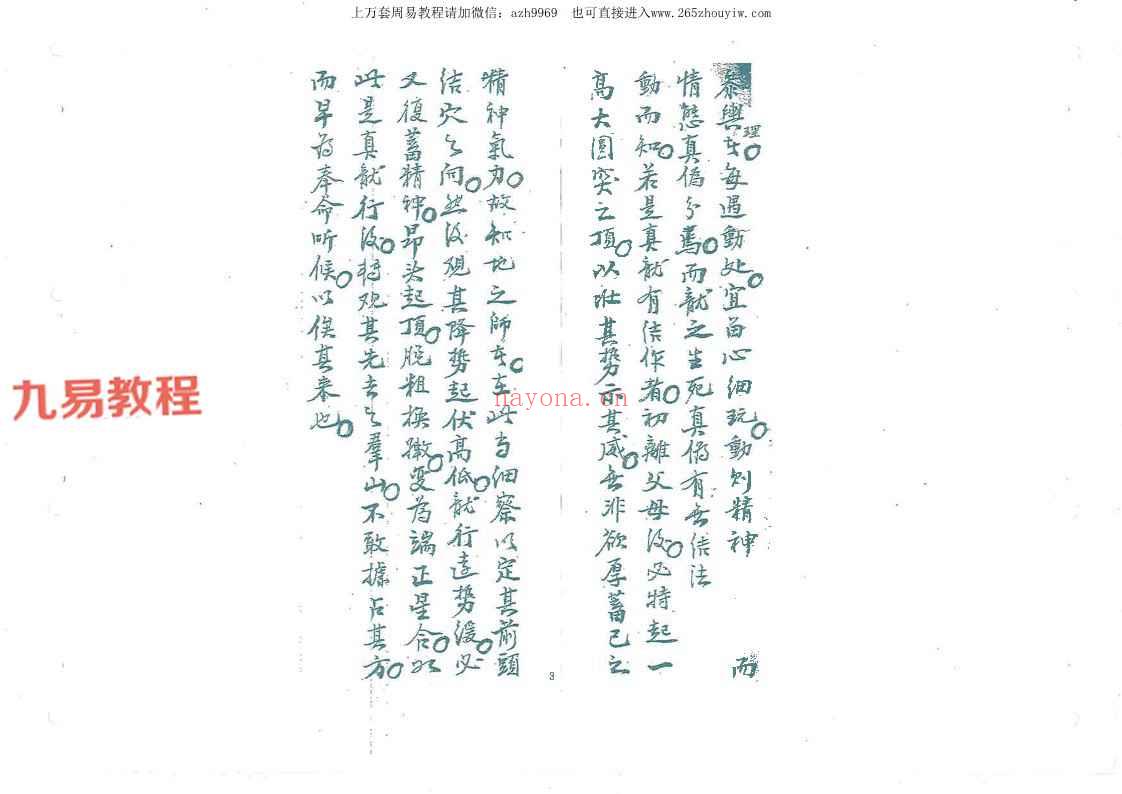 上万套周易教程请加微信：azh9969 也可直接进入www.265zhouyiw.com
輿理者每遇動处宜留心細玩動则精神 而
情態真偽分焉而龍之生死真偽有無结法
動而知若是真龍有结作者初離父母後必特起一
高大圓突之頂以壯其勢示其威無非欲厚蓄已之
精神氣力故知地之師者在此当細察以定其前頭
结穴之向然後观其降勢起伏高低龍行遠勢漫必
又復蓄精神昂头起頂脱粗換嫩变為端正星合如
此是真龍行後特观其先去之羣山不敢據占其方
而早為奉命听候以俟其来也
3
九易教程
nayona.cn